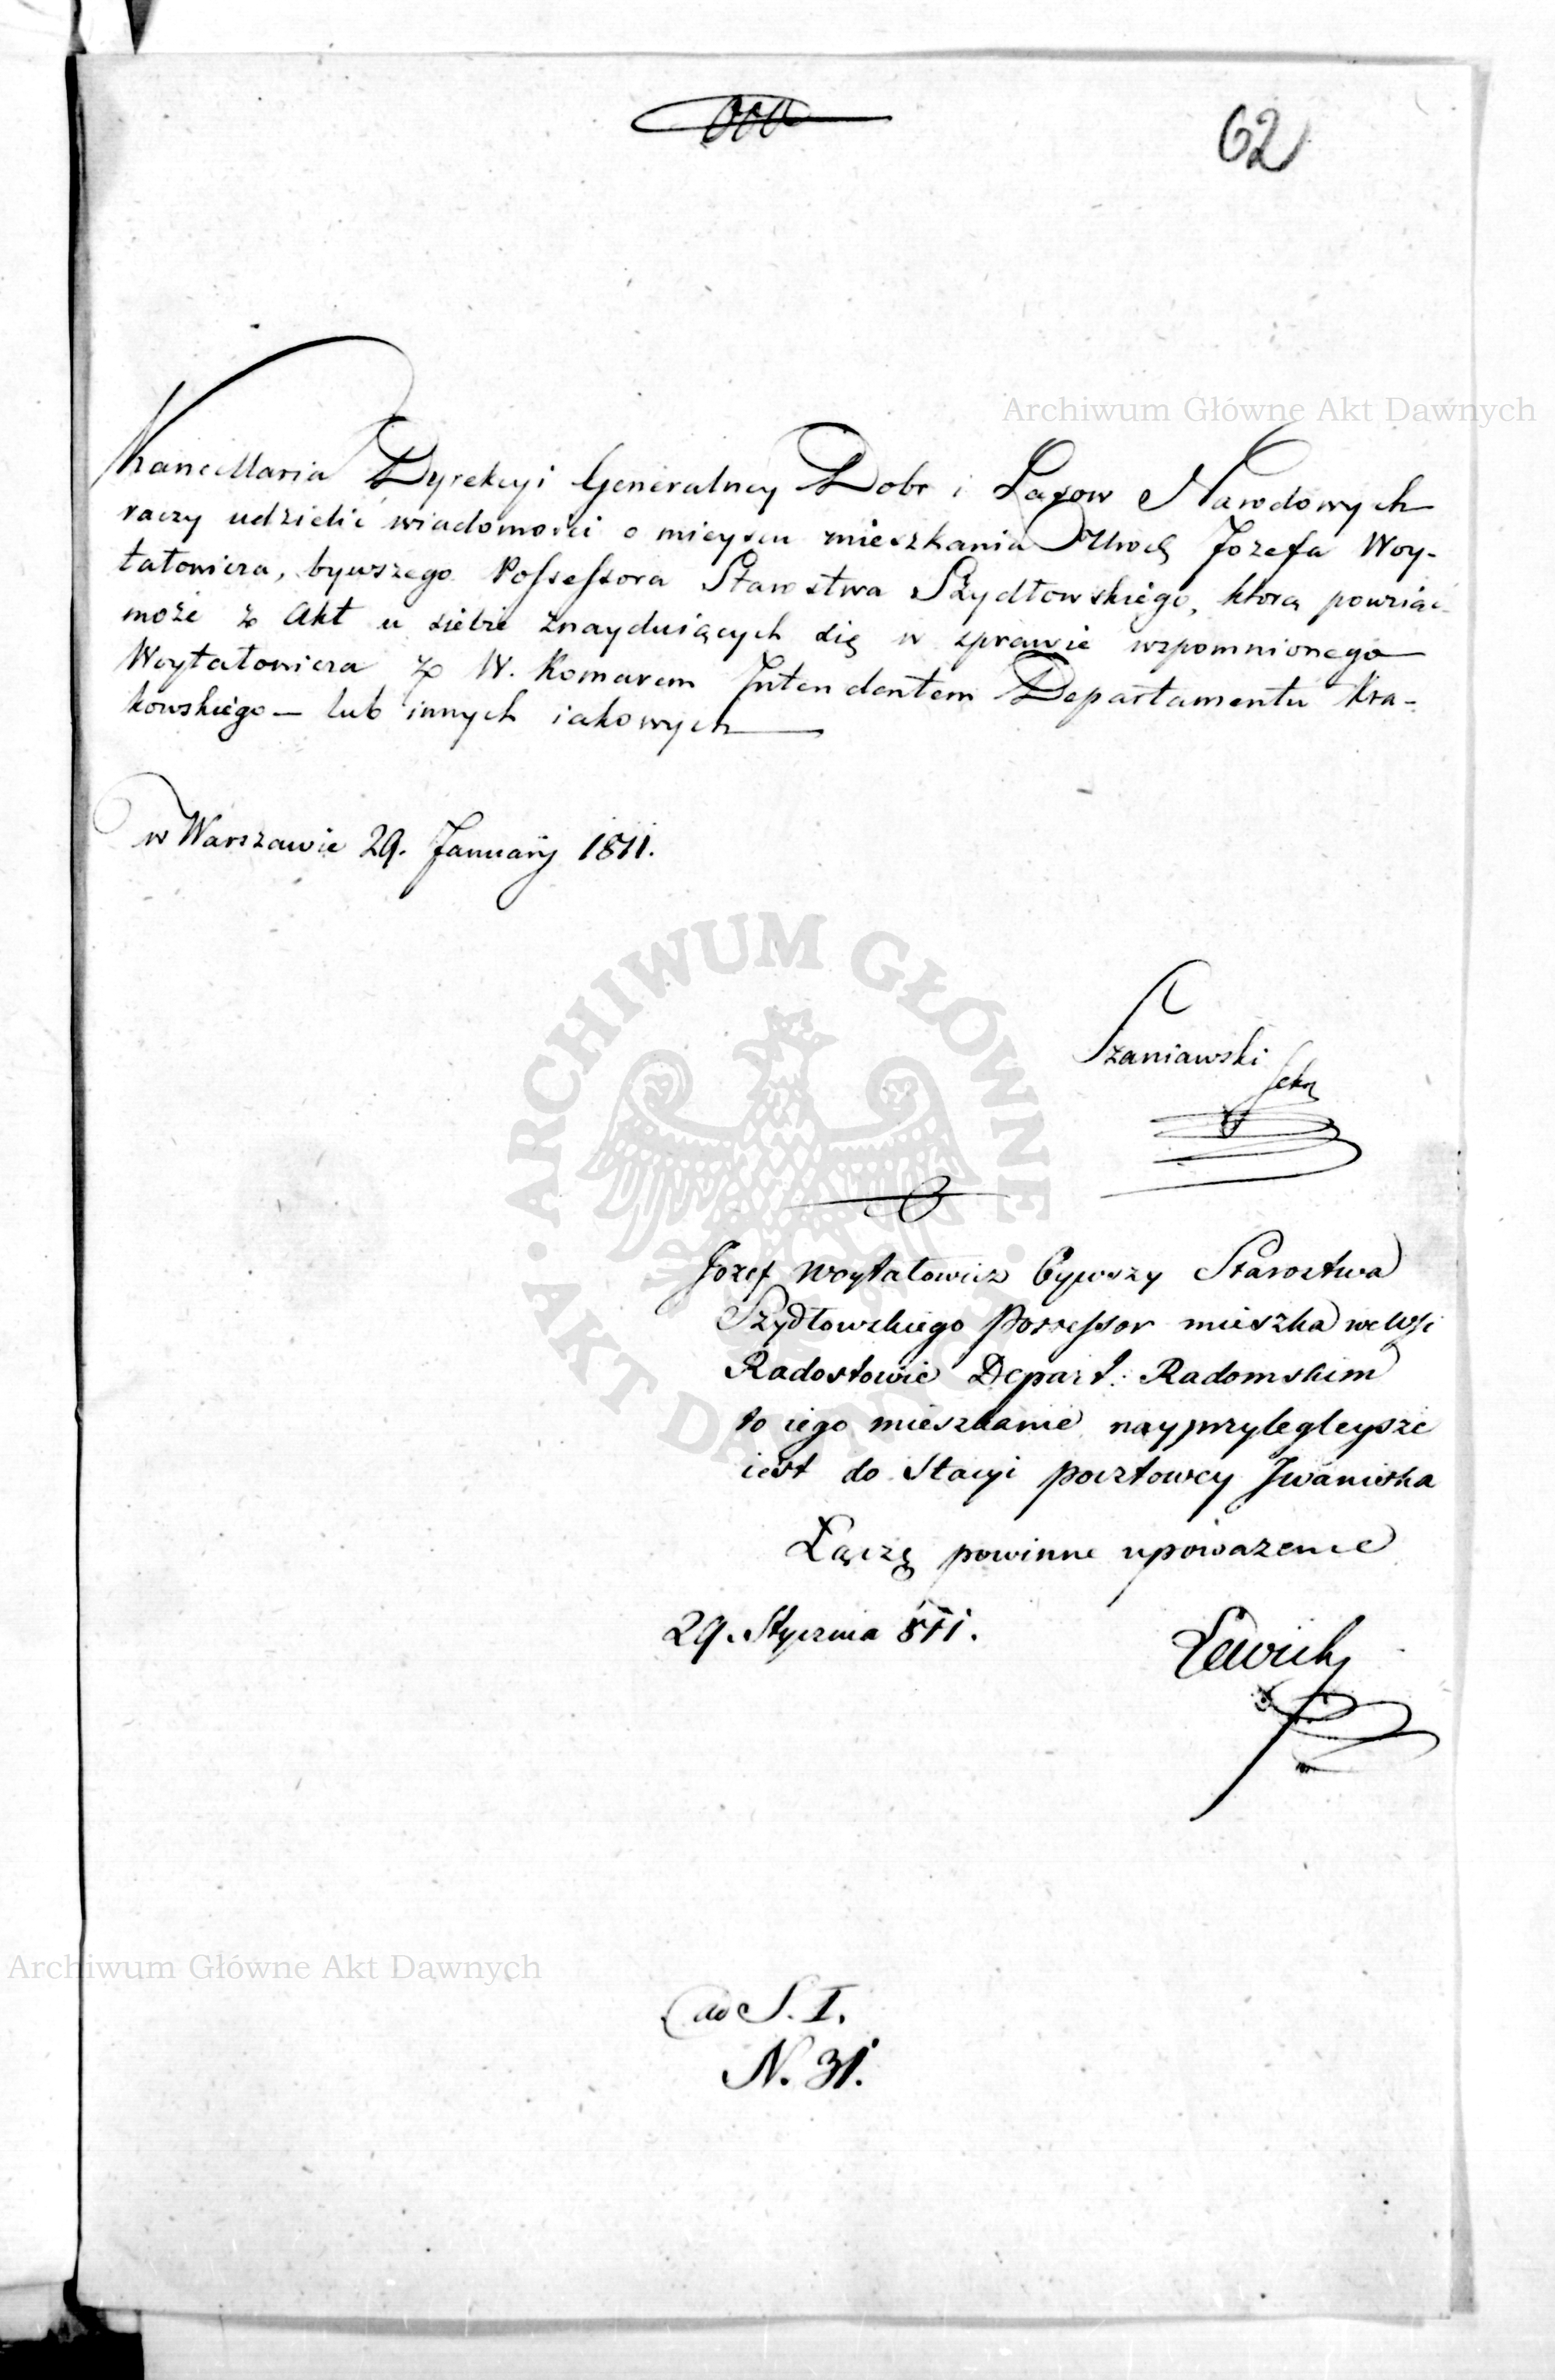 62
Archiwum Główne Akt Dawnych
Kancellaria Dyrekcyi Generalney Dobr i Lasow Narodowych
raczy udzielić wiadomości o mieyscu mieszkania Józefa Woy-
tatowicza, bywszego Possessora Starostwa Szydłowskiego, ktorą powziąć
może z Akt u siebie znayduiących się w sprawie wspomnionego
Woytatowicza z W. Komarem Intendentem Departamentu Kra-
kowskiego — lub innych iakowych
w Warszawie 29. January 1811.
ARCHIWUM GŁÓWNE AKT DAWNYCH
Szaniawski
Sekr
Jozef Woytatowicz bywszy Starostwa
Szydłowskiego Possessor mieszka we Wsi
Radostowie Depart: Radomskim
to iego mieszkanie nayprzyległeysze
iest do Stacyi pocztowey Iwaniska
Łączę powinne upoważenie
29. Stycznia 811.
Archiwum Główne Akt Dawnych
ad S. I.
N. 31.